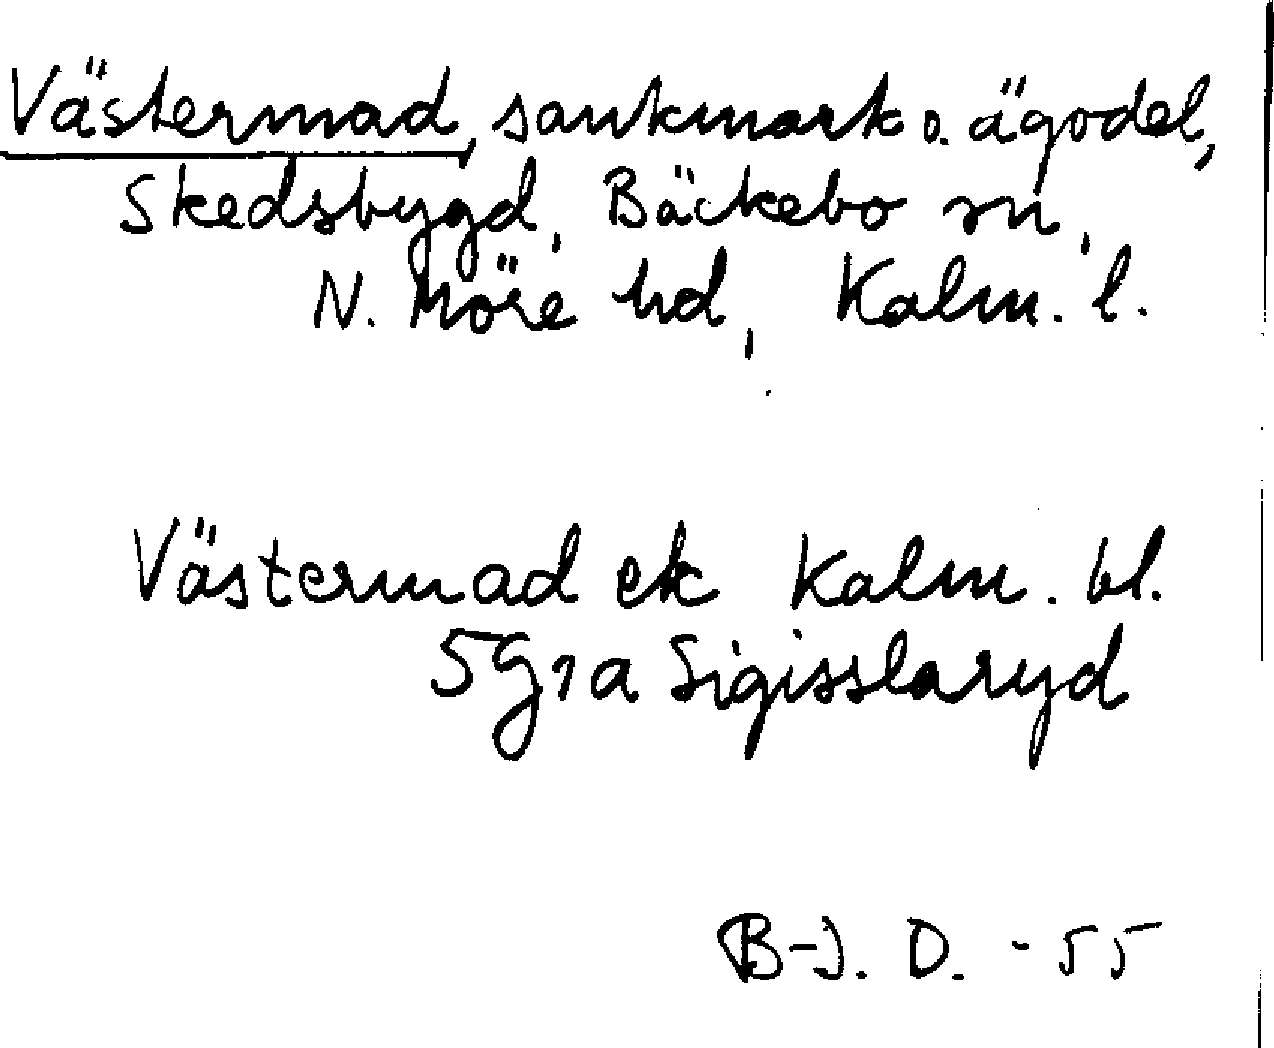 Västermad, sankmark o. ägodel,
Skedsbygd, Bäckebo sn,
N. Möre hd, Kalm. l.
Västermad ek Kalm. bl.
5G1a Sigisslaryd
B-J. D. -55